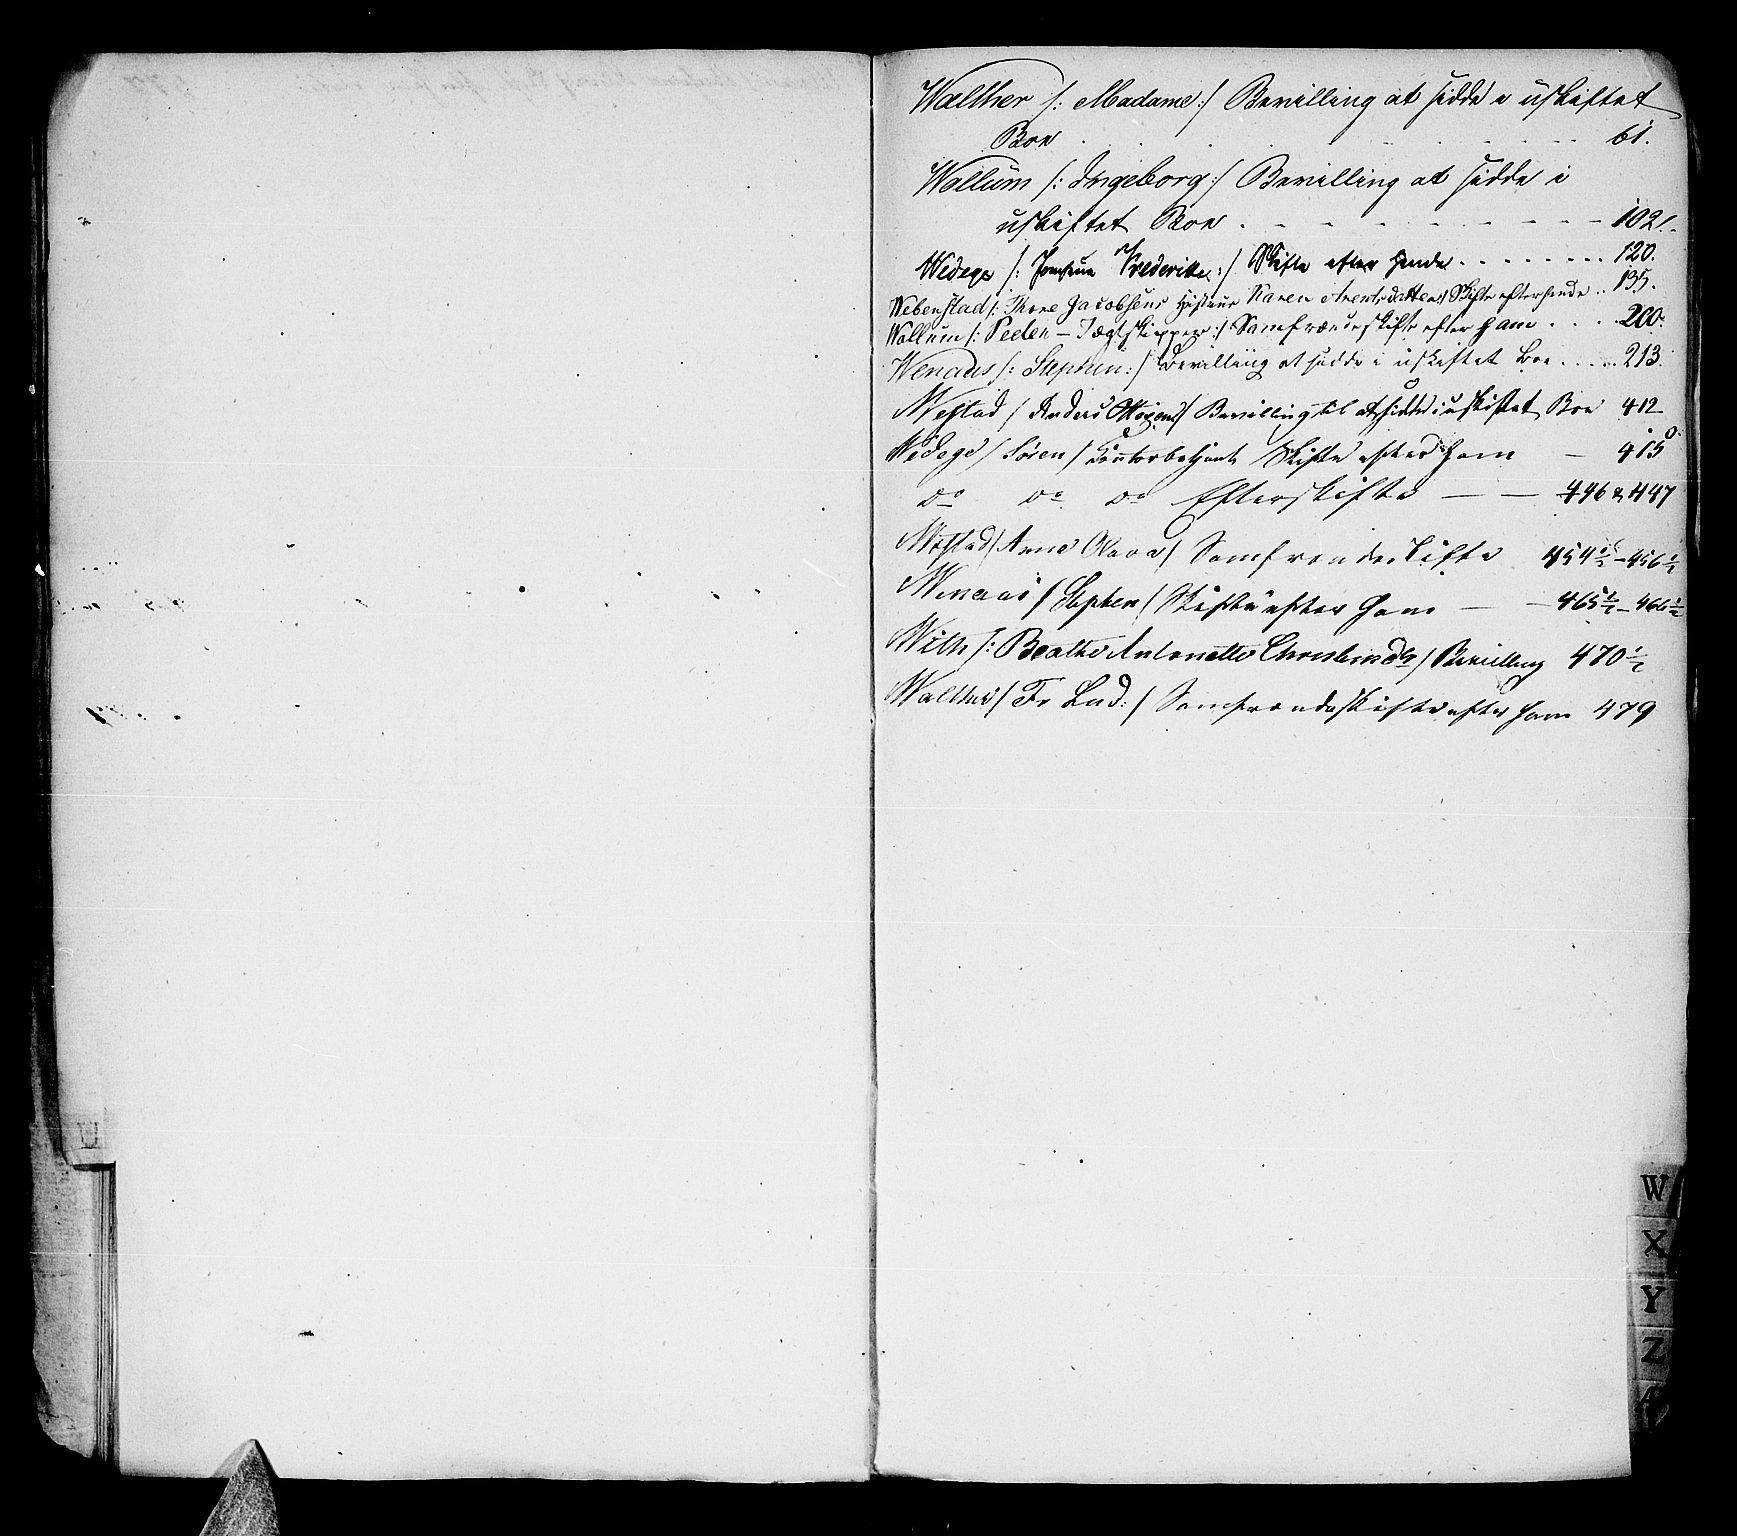 Walther /: Madame:/ Bevilling at sidde i uskiftet
Boe 61.
Wallum /: Ingeborg:/ Bevilling at sidde i
uskiftet Boe 102.
Widege /: Jomfrue Frederikke:/ Skifte efter hende 120.
Webenstad /: Thore Jacobsens Hustrue Karen Arentsdatter:/ Skifte efter hende 135.
Wallum /: Peder - Jægtskipper:/ Samfrændeskifte efter ham 200.
Wenaas /: Stephen:/ Bevilling at sidde i uskiftet Boe 213.
Westad / Anders / Bevilling til at sidde i uskiftet Boe 412
Widege / Søren / Contorbetjent Skifte efter ham - 415
do do do Efterskifte - - 446 & 447
/ Arne / Samfrændeskifte 454½-456½
Wenaas / Stephen / Skifte efter ham - - 465½-466½
With /: Beathe Antonette / Bevilling 470½
Walther / Fr Lud: / Samfrændeskifte efter ham 479
U
W
X
Y
Z